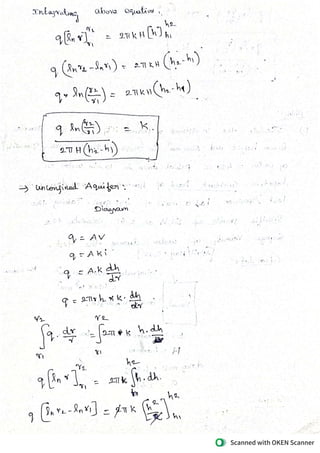 Integrating above equation:
q[ln r]^{r2}_{r1} = 2πKH[h]^{h2}_{h1}
q (ln r2 - ln r1) = 2πKH (h2-h1)
q * ln(r2/r1) = 2πKH (h2-h1)
q ln(r2/r1) / 2πH(h2-h1) = K.
→ Unconfined Aquifer:
Diagram
q = AV
q = AKi
q = A.K dh/dr
q = 2πrh * K. dh/dr
∫^{r2}_{r1} q. dr/r = ∫^{r2}_{r1} 2π * K h. dh
q [ln r]^{r2}_{r1} = 2πK ∫^{h2}_{h1} h. dh.
q [ln r2 - ln r1] = 2πK [h²/2]^{h2}_{h1}
Scanned with OKEN Scanner